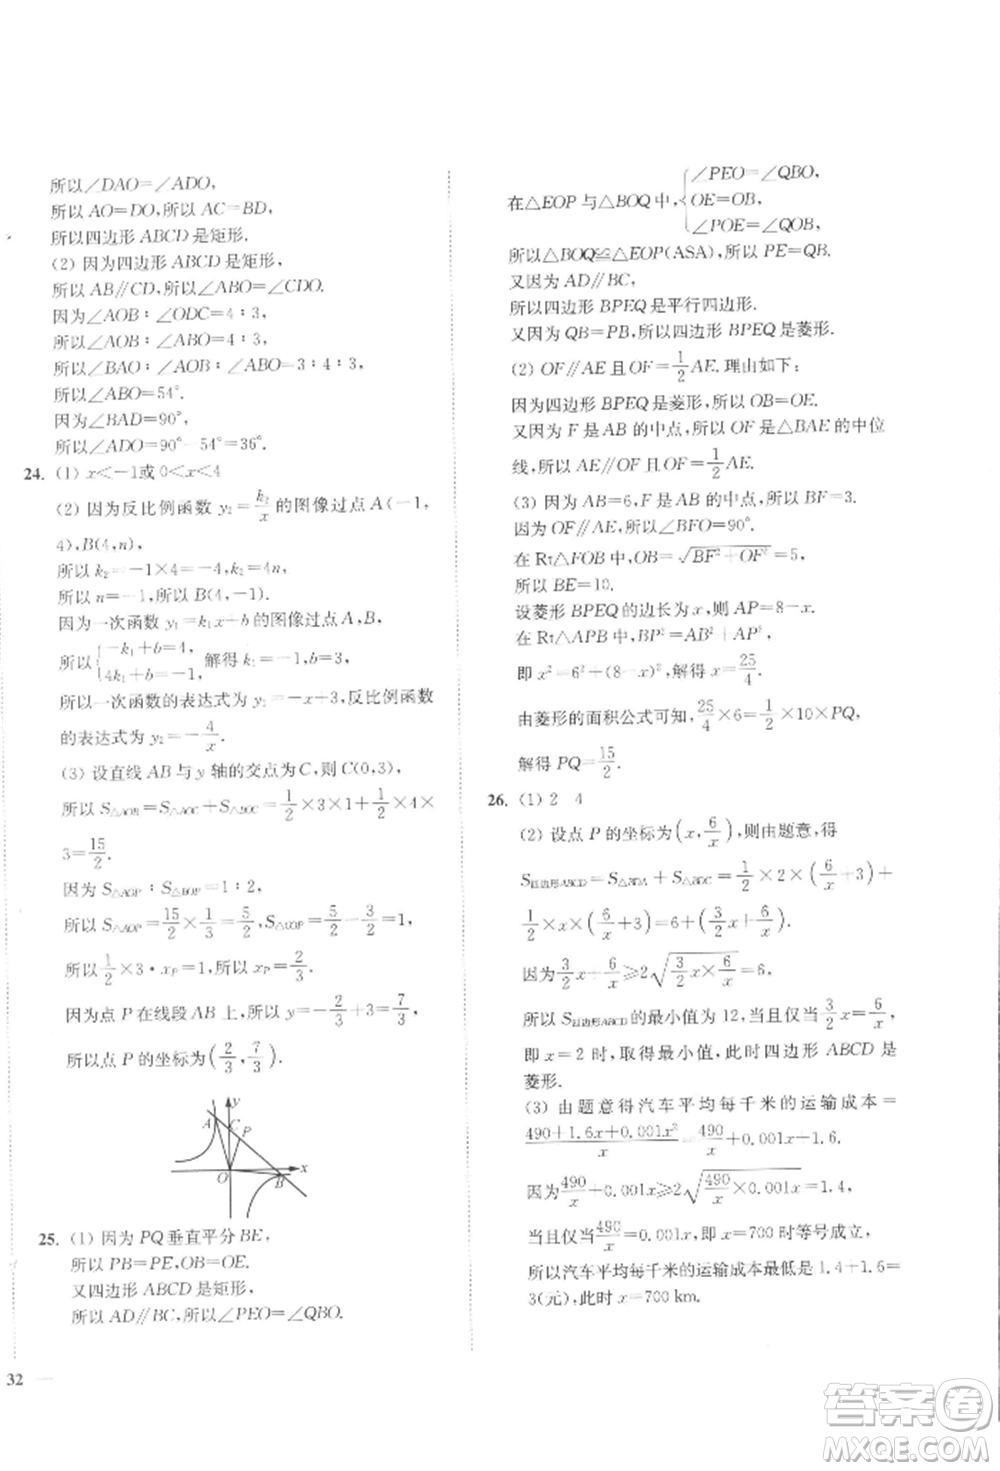 所以∠DAO=∠ADO,
所以 AO=DO,所以 AC=BD,
所以四边形 ABCD 是矩形.
(2) 因为四边形 ABCD 是矩形,
所以 AB∥CD,所以∠ABO=∠ODC.
因为∠AOB∶∠ODC=4∶3,
所以∠AOB∶∠ABO=4∶3,
所以∠BAO∶∠AOB∶∠ABO=3∶4∶3,
所以∠ABO=54°.
因为∠BAD=90°,
所以∠ADO=90°-54°=36°.
24. (1) x<-1或0<x<4
(2) 因为反比例函数 y₂=k₂/x 的图像过点 A(-1,
4),B(4,n),
所以 k₂=-1×4=-4,k₂=4n,
所以 n=-1,所以 B(4,-1).
因为一次函数 y₁=k₁x+b 的图像过点 A,
所以{-k₁+b=4, 4k₁+b=-1, 解得 k₁=-1,b=3.
所以一次函数的表达式为 y₁=-x+3,反比例函数
的表达式为 y₂=-4/x.
(3) 设直线 AB 与 y 轴的交点为C,则 C(0,3),
所以 S△AOB=S△AOC+S△BOC=1/2×3×1+1/2×4×
3=15/2.
因为 S△AOP∶S△BOP=1∶2,
所以 S△AOP=15/2×1/3=5/2,S△COP=5/2-3/2=1,
所以 1/2×3·xP=1,所以 xP=2/3.
因为点 P 在线段 AB 上,所以 y=-2/3+3=7/3,
所以点 P 的坐标为(2/3,7/3).
y
A
C
P
O
B
x
25. (1) 因为 PQ 垂直平分 BE,
所以 PB=PE,OB=OE.
又四边形 ABCD 是矩形,
所以 AD∥BC,所以∠PEO=∠QBO.
32
在△EOP 与△BOQ 中,{∠PEO=∠QBO, OE=OB, ∠POE=∠QOB,
所以△BOQ≌△EOP(ASA),所以 PE=QB.
又因为 AD∥BC,
所以四边形 BPEQ 是平行四边形.
又因为 QB=PB,所以四边形 BPEQ 是菱形.
(2) OF∥AE 且 OF=1/2AE.理由如下:
因为四边形 BPEQ 是菱形,所以 OB=OE.
又因为 F 是 AB 的中点,所以 OF 是△BAE 的中位
线,所以 AE∥OF 且 OF=1/2AE.
(3) 因为 AB=6,F 是 AB 的中点,所以 BF=3.
因为 OF∥AE,所以∠BFO=90°.
在 Rt△FOB 中,OB=√(BF²+OF²)=5,
所以 BE=10.
设菱形 BPEQ 的边长为 x,则 AP=8-x.
在 Rt△APB 中,BP²=AB²+AP²,
即 x²=6²+(8-x)²,解得 x=25/4.
由菱形的面积公式可知,25/4×6=1/2×10×PQ,
解得 PQ=15/2.
26. (1) 2 4
(2) 设点 P 的坐标为(x,6/x),则由题意,得
S四边形ABCD=S△BDA+S△BDC=1/2×2×(6/x+3)+
1/2×x×(6/x+3)=6+(3/2x+6/x).
因为3/2x+6/x≥2√(3/2x×6/x)=6,
所以 S四边形ABCD 的最小值为 12,当且仅当3/2x=6/x,
即 x=2 时,取得最小值,此时四边形 ABCD 是
菱形.
(3) 由题意得汽车平均每千米的运输成本=
(490+1.6x+0.001x²)/x=490/x+0.001x+1.6,
因为490/x+0.001x≥2√(490/x×0.001x)=1.4,
当且仅当490/x=0.001x,即 x=700 时等号成立,
所以汽车平均每千米的运输成本最低是 1.4+1.6=
3(元),此时 x=700 km.
答案卷
MXQE.COM